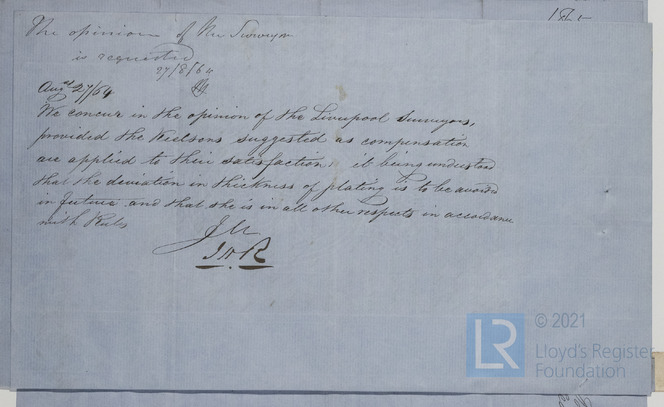 The opinion of the Surveyors
is requested
27/8/64
Augt 27/64
We concur in the opinion of the Liverpool Surveyors,
provided the Keelsons suggested as compensation
are applied to their satisfaction: it being understood
that the deviation in thickness of plating is to be avoided
in future and that she is in all other respects in accordance
with Rules
LR
© 2021
Lloyd's Register
Foundation